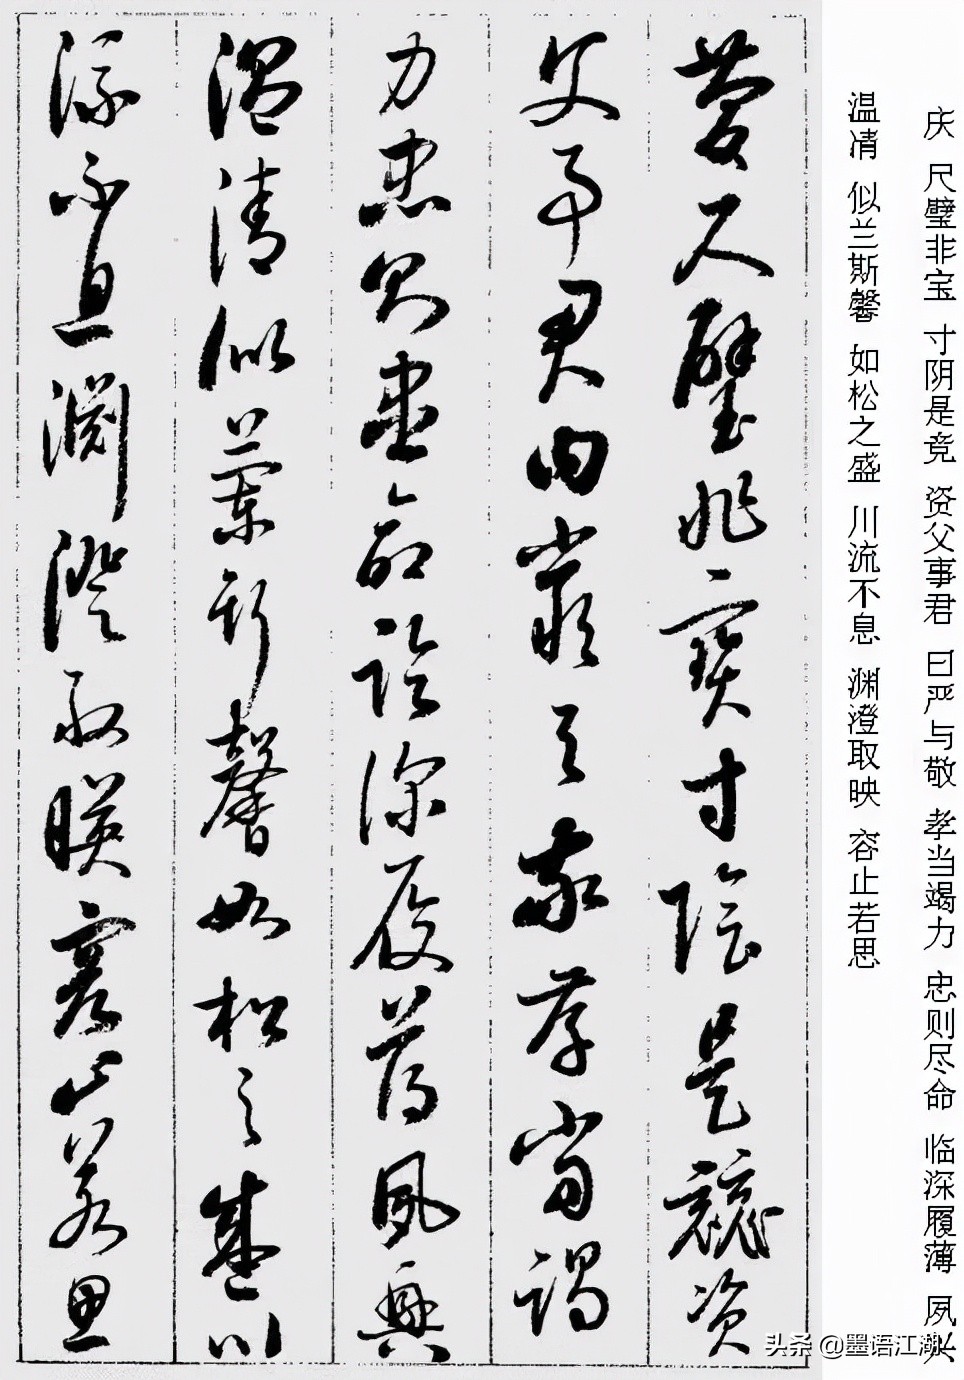 庆 尺璧非宝 寸阴是竞 资父事君 曰严与敬 孝当竭力 忠则尽命 临深履薄 夙兴
温凊 似兰斯馨 如松之盛 川流不息 渊澄取映 容止若思
慶尺璧非寶寸陰是競資
父事君曰嚴与敬孝當竭
力忠則盡命臨深履薄夙興
溫清似蘭斯馨如松之盛川
流不息淵澄取暎容止若思
头条 @墨语江湖